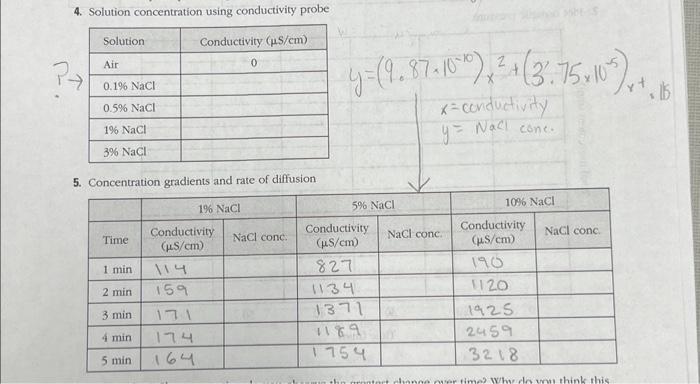 4. Solution concentration using conductivity probe
Solution Conductivity (µS/cm)
Air 0
? → 0.1% NaCl
0.5% NaCl
1% NaCl
3% NaCl
y=(9.87×10⁻¹⁰)x²+(3.75×10⁻⁵)x+.15
x=conductivity
y= NaCl conc.
5. Concentration gradients and rate of diffusion
1% NaCl 5% NaCl 10% NaCl
Time Conductivity (µS/cm) NaCl conc. Conductivity (µS/cm) NaCl conc. Conductivity (µS/cm) NaCl conc.
1 min 114 827 190
2 min 159 1134 1120
3 min 171 1371 1925
4 min 174 1189 2459
5 min 164 1754 3218
change over time? Why do you think this